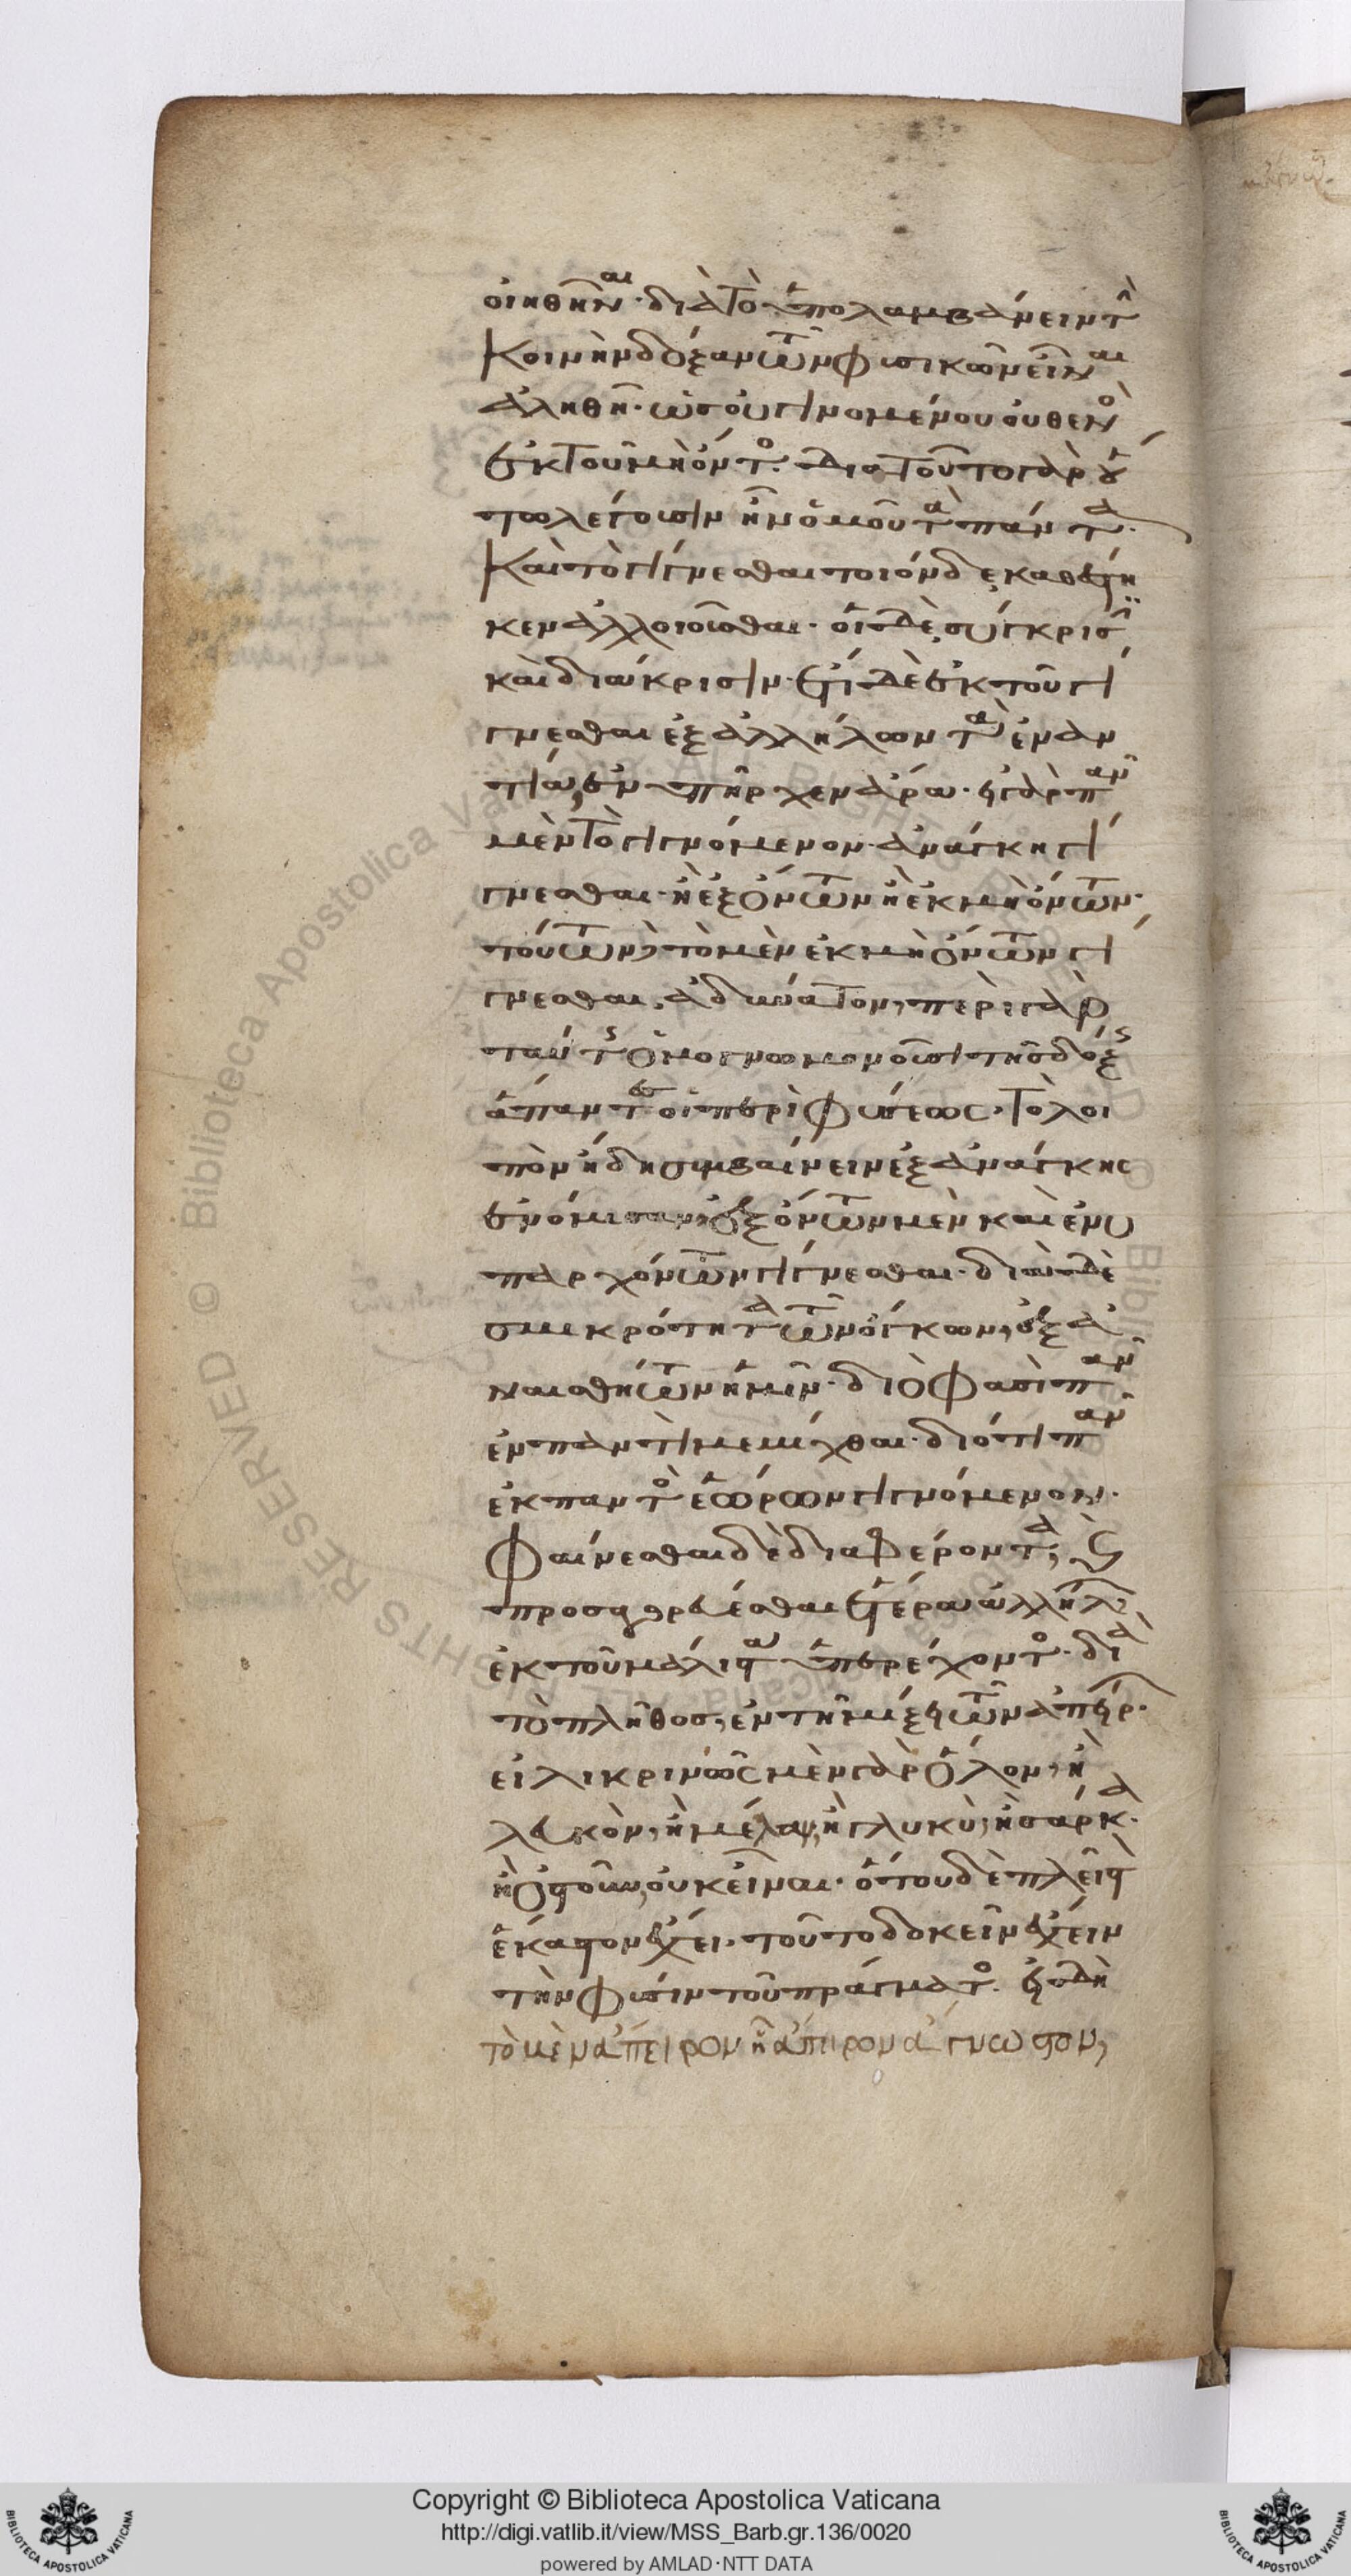 οἰηθῆναι· διὰ τὸ ὑπολαμβάνειν τὴν
κοινὴν δόξαν τῶν φυσικῶν εἶναι
ἀληθῆ· ὡς οὐ γινομένου οὐθενὸς
ἐκ τοῦ μὴ ὄντος. διατοῦτο γὰρ οὕ
τω λέγουσιν ἦν ὁμοῦ τὰ πάντα.
καὶ τὸ γίγνεσθαι τοιόνδε καθέστη
κεν ἀλλοιοῦσθαι· οἱ δὲ σύγκρισιν
καὶ διάκρισιν· ἔτι δὲ ἐκ τοῦ γί
γνεσθαι ἐξ ἀλλήλων τὰ ἐναν
τία, ἐνυπῆρχεν ἄρα· εἰ γὰρ πᾶν
μὲν τὸ γιγνόμενον· ἀνάγκη γί
γνεσθαι· ἢ ἐξ ὄντων ἢ ἐκ μὴ ὄντων·
τούτων δὲ τὸ μὲν ἐκ μὴ ὄντων γί
γνεσθαι, ἀδύνατον, περὶ γὰρ
ταύτης ὁμογνωμονοῦσι τῆς δόξης
ἅπαντες οἱ περὶ φύσεως. τὸ λοι
πὸν ἤδη συμβαίνειν ἐξ ἀνάγκης
ἐνόμισαν, ἐξ ὄντων μὲν καὶ ἐνυ
παρχόντων γίγνεσθαι· διὰ δὲ
σμικρότητα τῶν ὄγκων, ἐξ ἀ
ναισθήτων ἡμῖν· διό φασι πᾶν
ἐν παντὶ μεμίχθαι· διότι πᾶν
ἐκ παντὸς ἑώρων γιγνόμενον.
φαίνεσθαι δὲ διαφέροντα, καὶ
προσαγορεύεσθαι ἕτερα ἀλλήλων
ἐκ τοῦ μάλιστα ὑπερέχοντος· διὰ
τὸ πλῆθος, ἐν τῇ μίξει τῶν ἀπείρων.
εἰλικρινῶς μὲν γὰρ ὅλον, ἢ
λευκὸν, ἢ μέλαν, ἢ γλυκὺ, ἢ σάρκα.
ἢ ὀστοῦν, οὐκ εἶναι· ὅτου δὲ πλεῖστον
ἕκαστον ἔχει. τοῦτο δοκεῖν ἔχειν
τὴν φύσιν τοῦ πράγματος. εἰ δὴ
τὸ μὲν ἄπειρον ᾗ ἄπειρον ἄγνωστον,
Copyright © Biblioteca Apostolica Vaticana
http://digi.vatlib.it/view/MSS_Barb.gr.136/0020
powered by AMLAD·NTT DATA